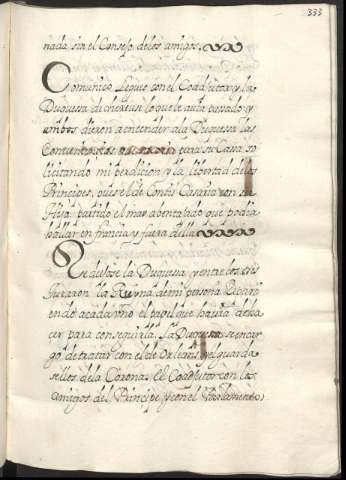 333
nada sin el Consejo de los amigos.
Comunico Legius con el Coadiutor y las
Duquesa de cheureus lo que le avia pasado y
ambos dieron a entender a la Duquesa las
para su Casa so
licitando mi perdicion y la libertad de los
Principes, pues el de Contis Casaria con su
Hija partido el mas abentaxado que podia
hallar en francia y fuera della
la Duquesa, y entre los tres
la Reyna de mi persona
endo acada uno el papel que havia de ha
cer para conseguirla. La Duquesa se encar
go, de tratar con el de Orleans, y el guarda
sellos de la Corona, El Coadiutor con los
amigos del Principe y con el Parlamento,